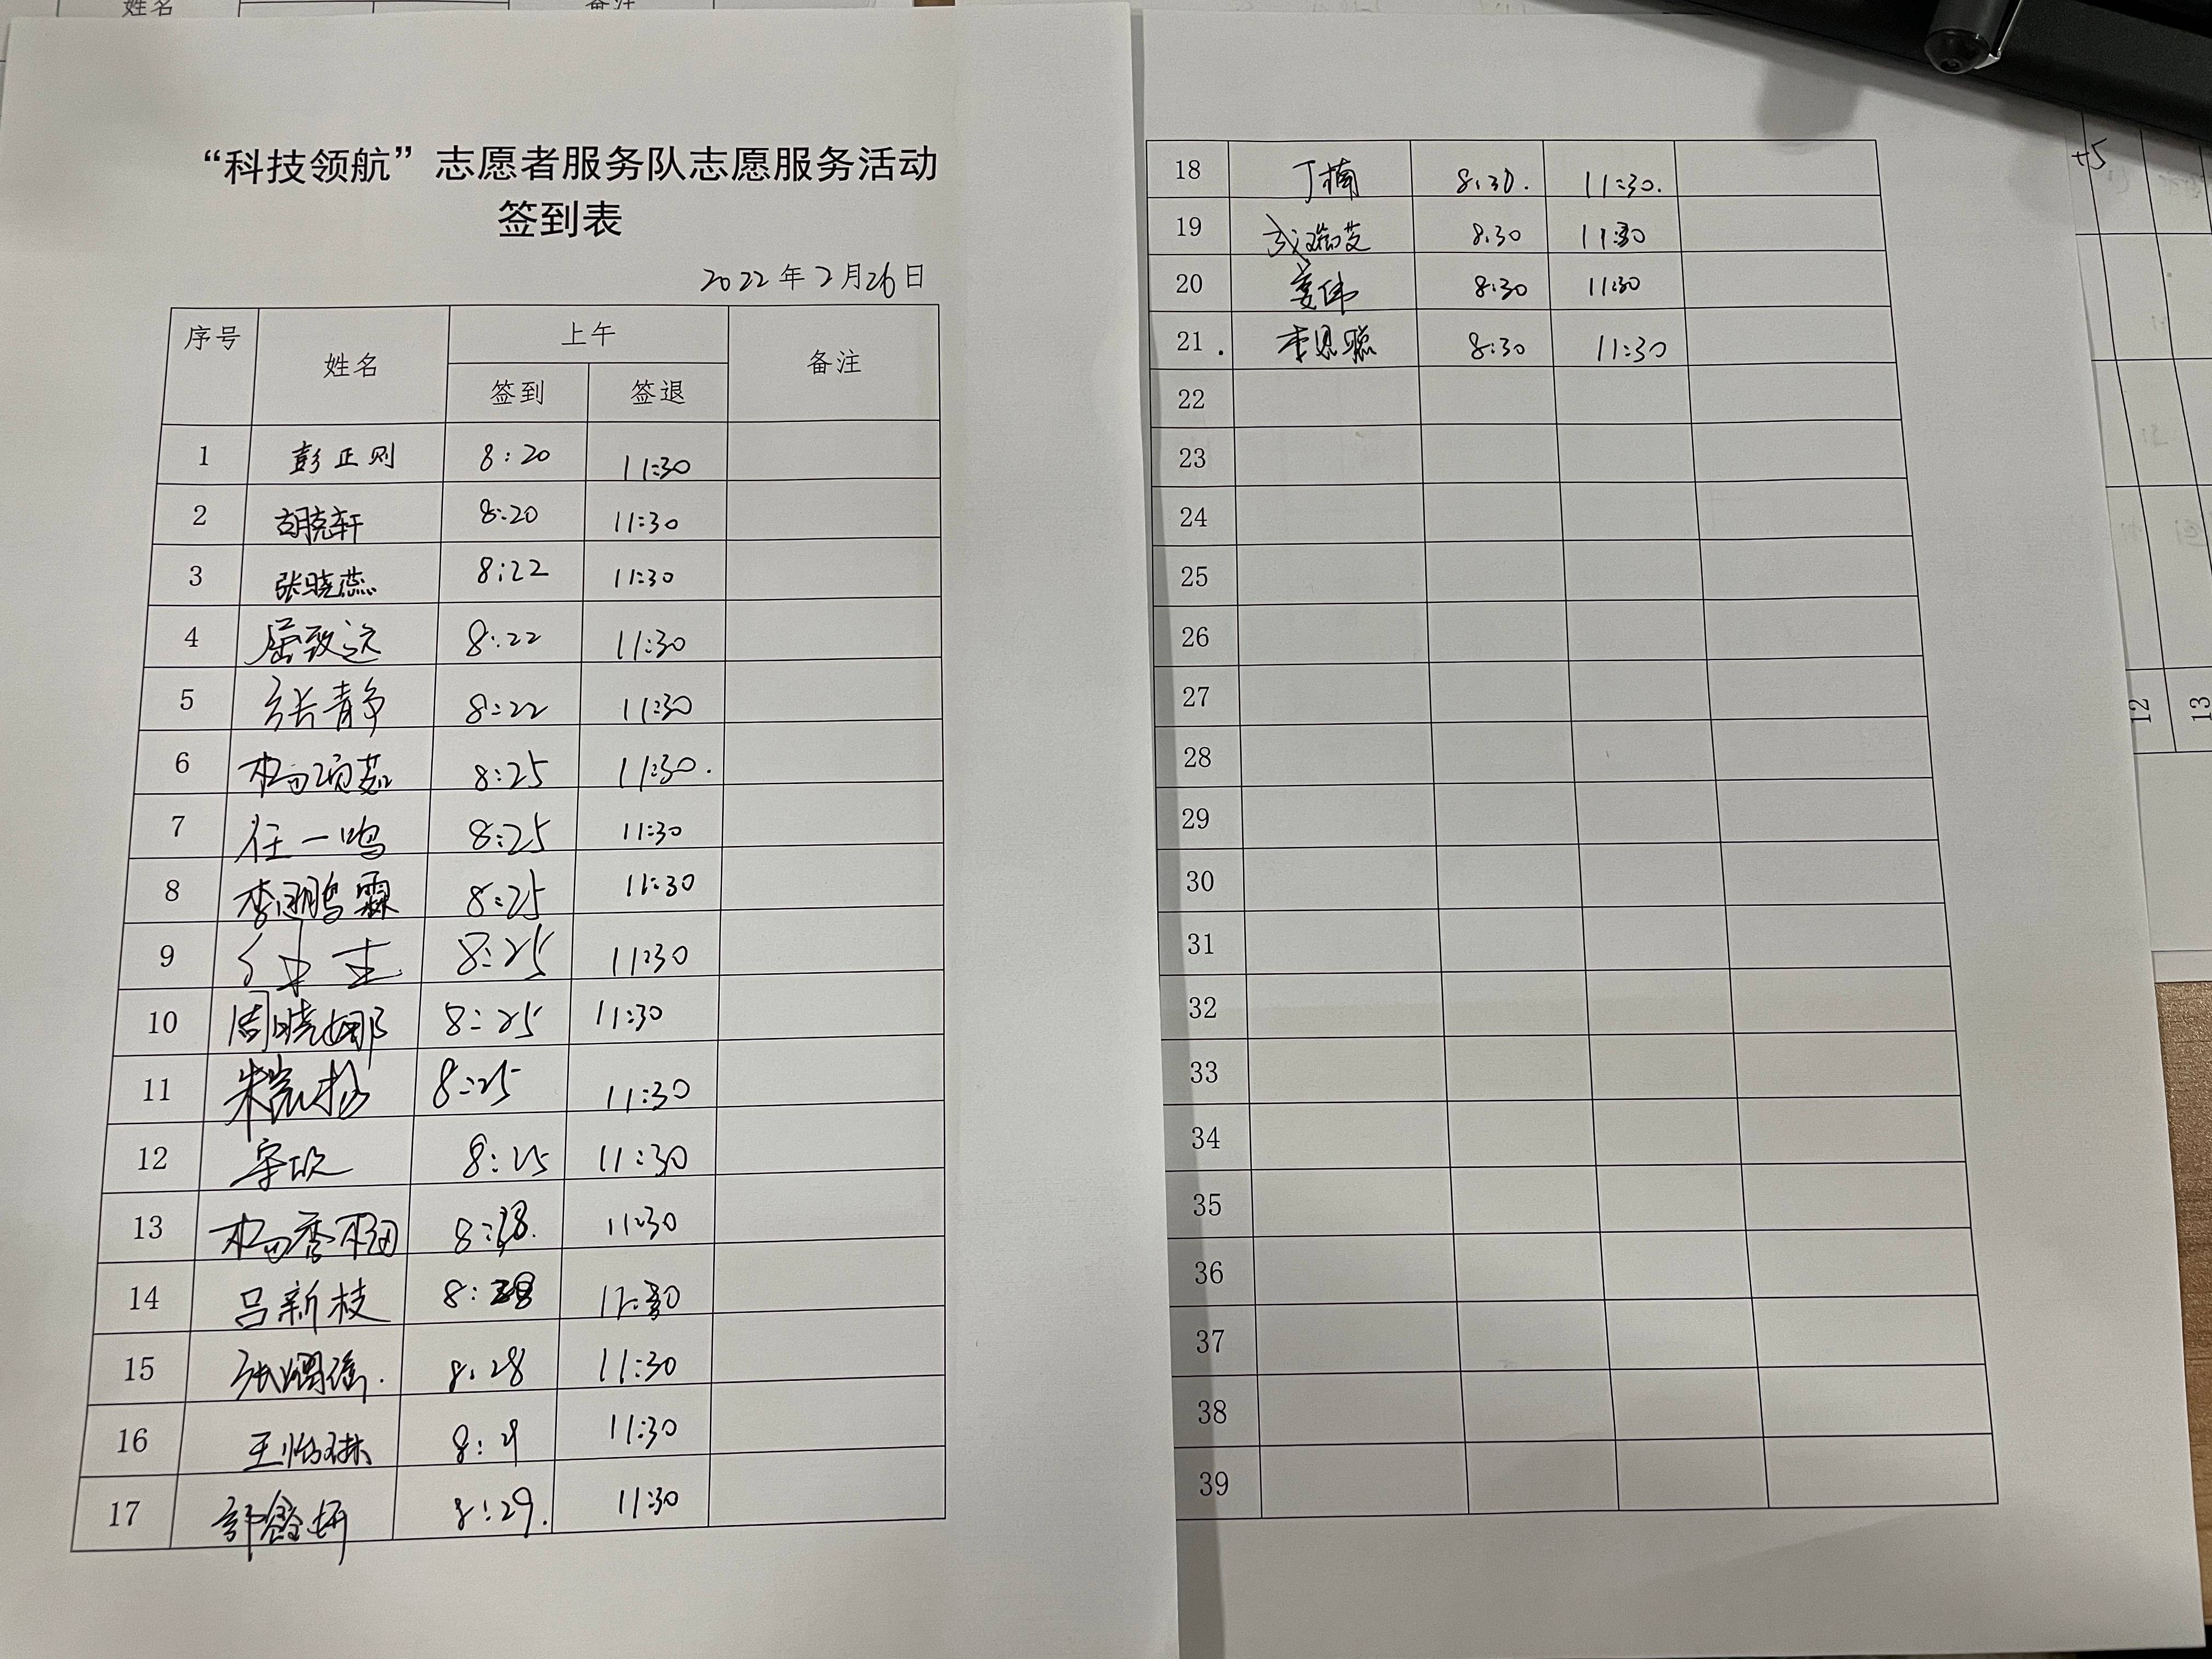 姓名 备注
“科技领航”志愿者服务队志愿服务活动
签到表
2022年2月26日
序号 姓名 上午 备注
签到 签退
1 彭正则 8:20 11:30
2 胡晓轩 8:20 11:30
3 张晓燕 8:22 11:30
4 屈致远 8:22 11:30
5 张静 8:22 11:30
6 杨项茹 8:25 11:30.
7 任一鸣 8:25 11:30
8 李翊鹏霖 8:25 11:30
9 8:25 11:30
10 周晓娜 8:25 11:30
11 朱凯杨 8:25 11:30
12 宋欣 8:25 11:30
13 杨香梅 8:28. 11:30
14 吕新枝 8:28 11:30
15 8:28 11:30
16 王怡琳 8:29 11:30
17 郭鑫妍 8:29. 11:30
18 丁楠 8:30. 11:30.
19 武瑞芝 8:30 11:30
20 姜伟 8:30 11:30
21. 李思聪 8:30 11:30
22
23
24
25
26
27
28
29
30
31
32
33
34
35
36
37
38
39
+5
12
13